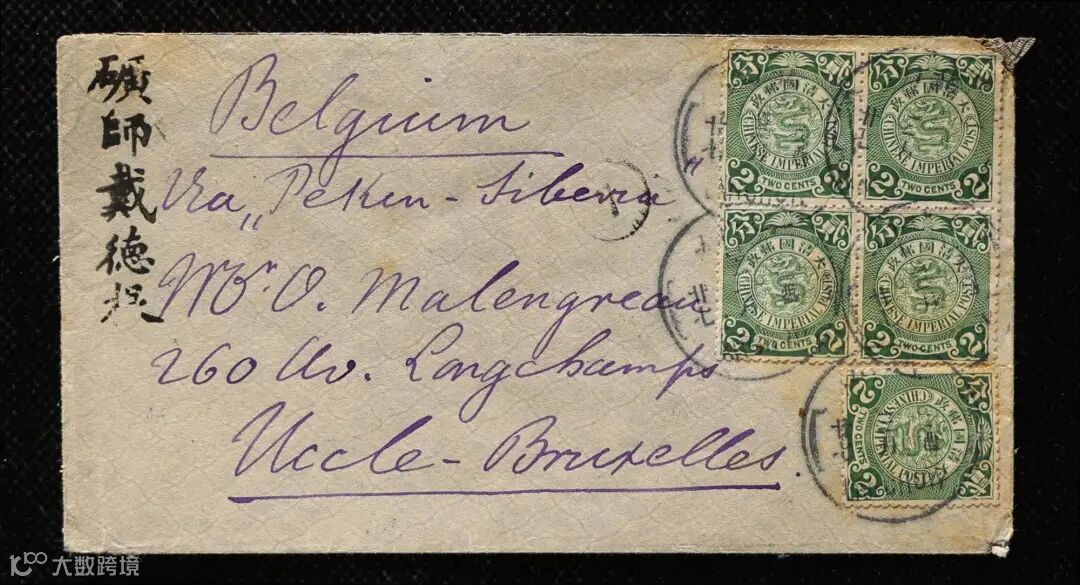 礦師戴德抿
Belgium
Via „Pekin - Siberia"
Mr. O. Malengreau
260 Av. Longchamps
Uccle - Bruxelles.
大清國郵政
貳分
CHINESE IMPERIAL POST
2 TWO CENTS 2
大清國郵政
貳分
CHINESE IMPERIAL POST
2 TWO CENTS 2
大清國郵政
貳分
CHINESE IMPERIAL POST
2 TWO CENTS 2
大清國郵政
貳分
CHINESE IMPERIAL POST
2 TWO CENTS 2
大清國郵政
貳分
CHINESE IMPERIAL POST
2 TWO CENTS 2
大数跨境